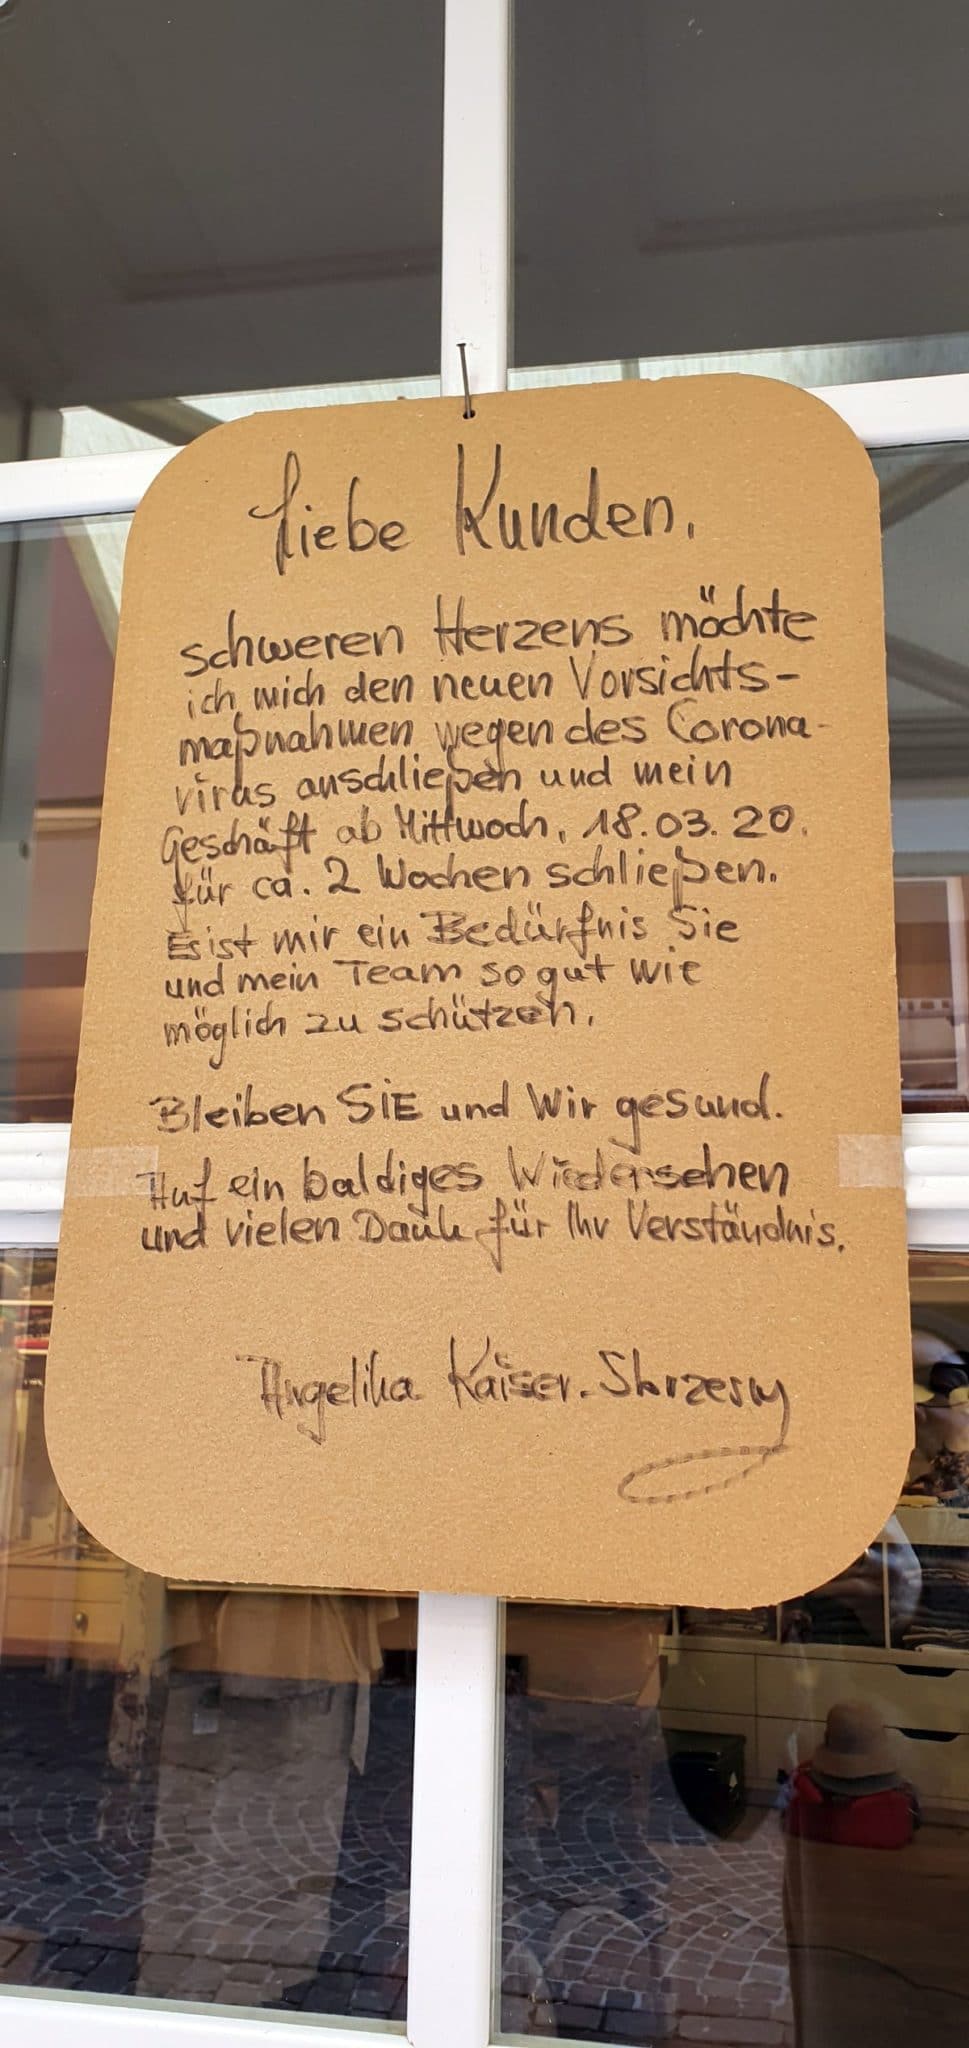 Liebe Kunden,
schweren Herzens möchte
ich mich den neuen Vorsichts-
maßnahmen wegen des Corona-
virus anschließen und mein
Geschäft ab Mittwoch, 18.03.20.
für ca. 2 Wochen schließen.
Es ist mir ein Bedürfnis Sie
und mein Team so gut wie
möglich zu schützen.
Bleiben SiE und Wir gesund.
Auf ein baldiges Wiedersehen
und vielen Dank für Ihr Verständnis.
Angelika Kaiser-